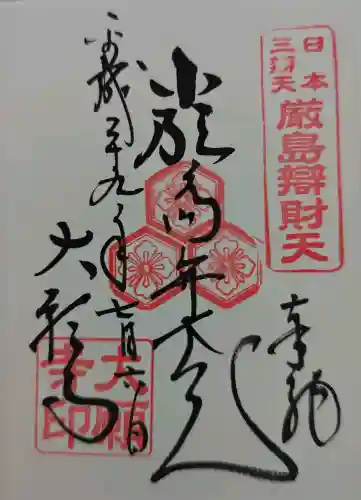 日本
三辨天
厳島辯財天
奉拝
厳島弁才天
平成二十九年七月六日
大願寺
大願
寺印